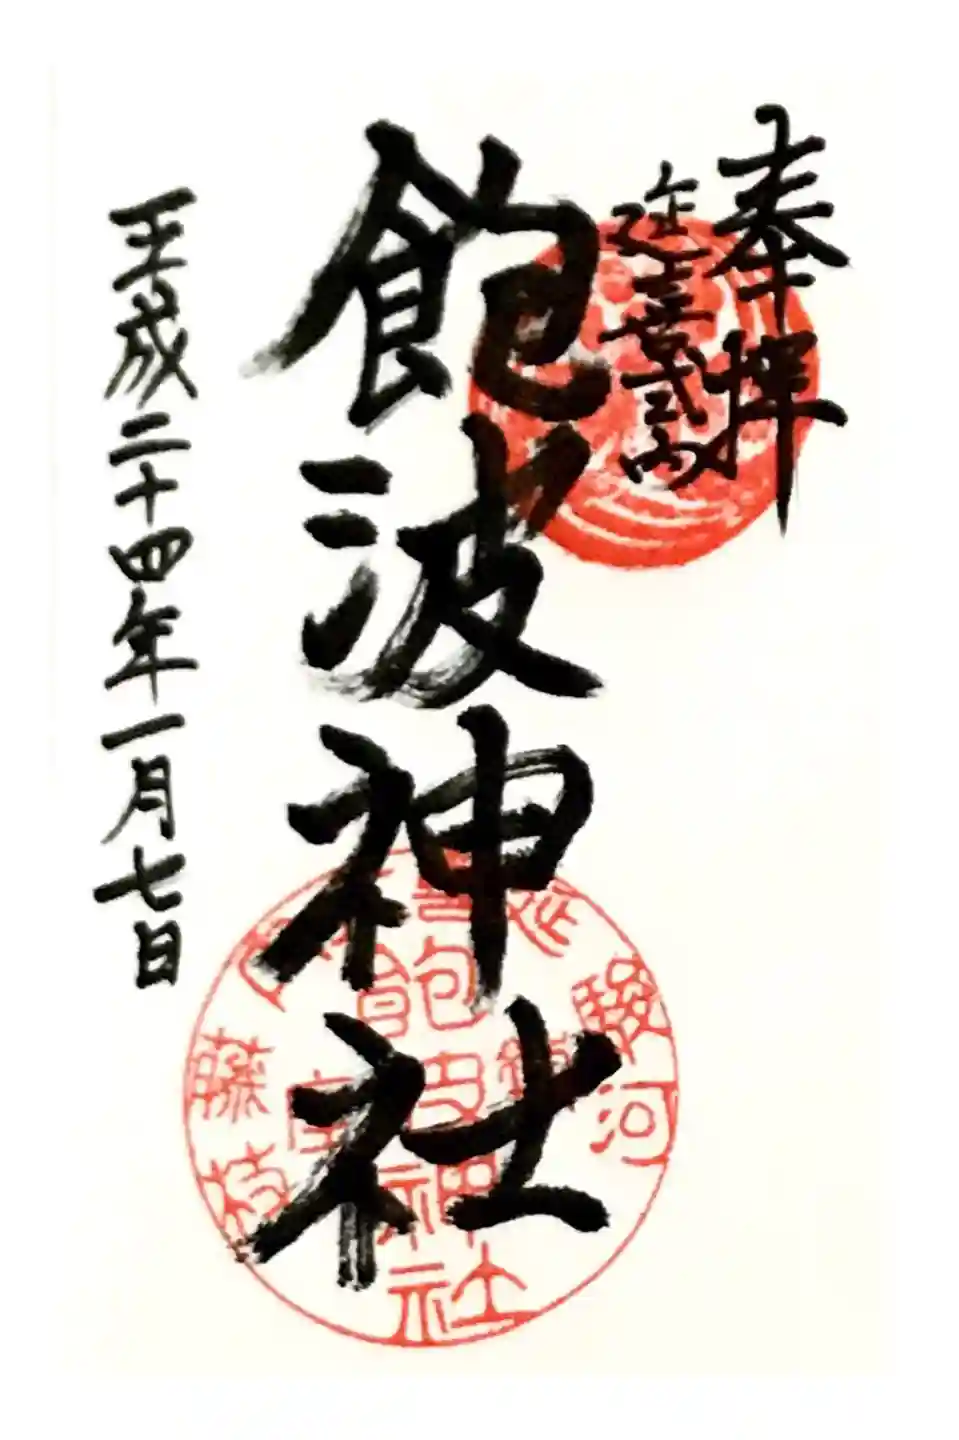 奉拝
延喜式内
飽波神社
平成二十四年一月七日
駿河
延喜
藤枝
鎮座
飽波神社